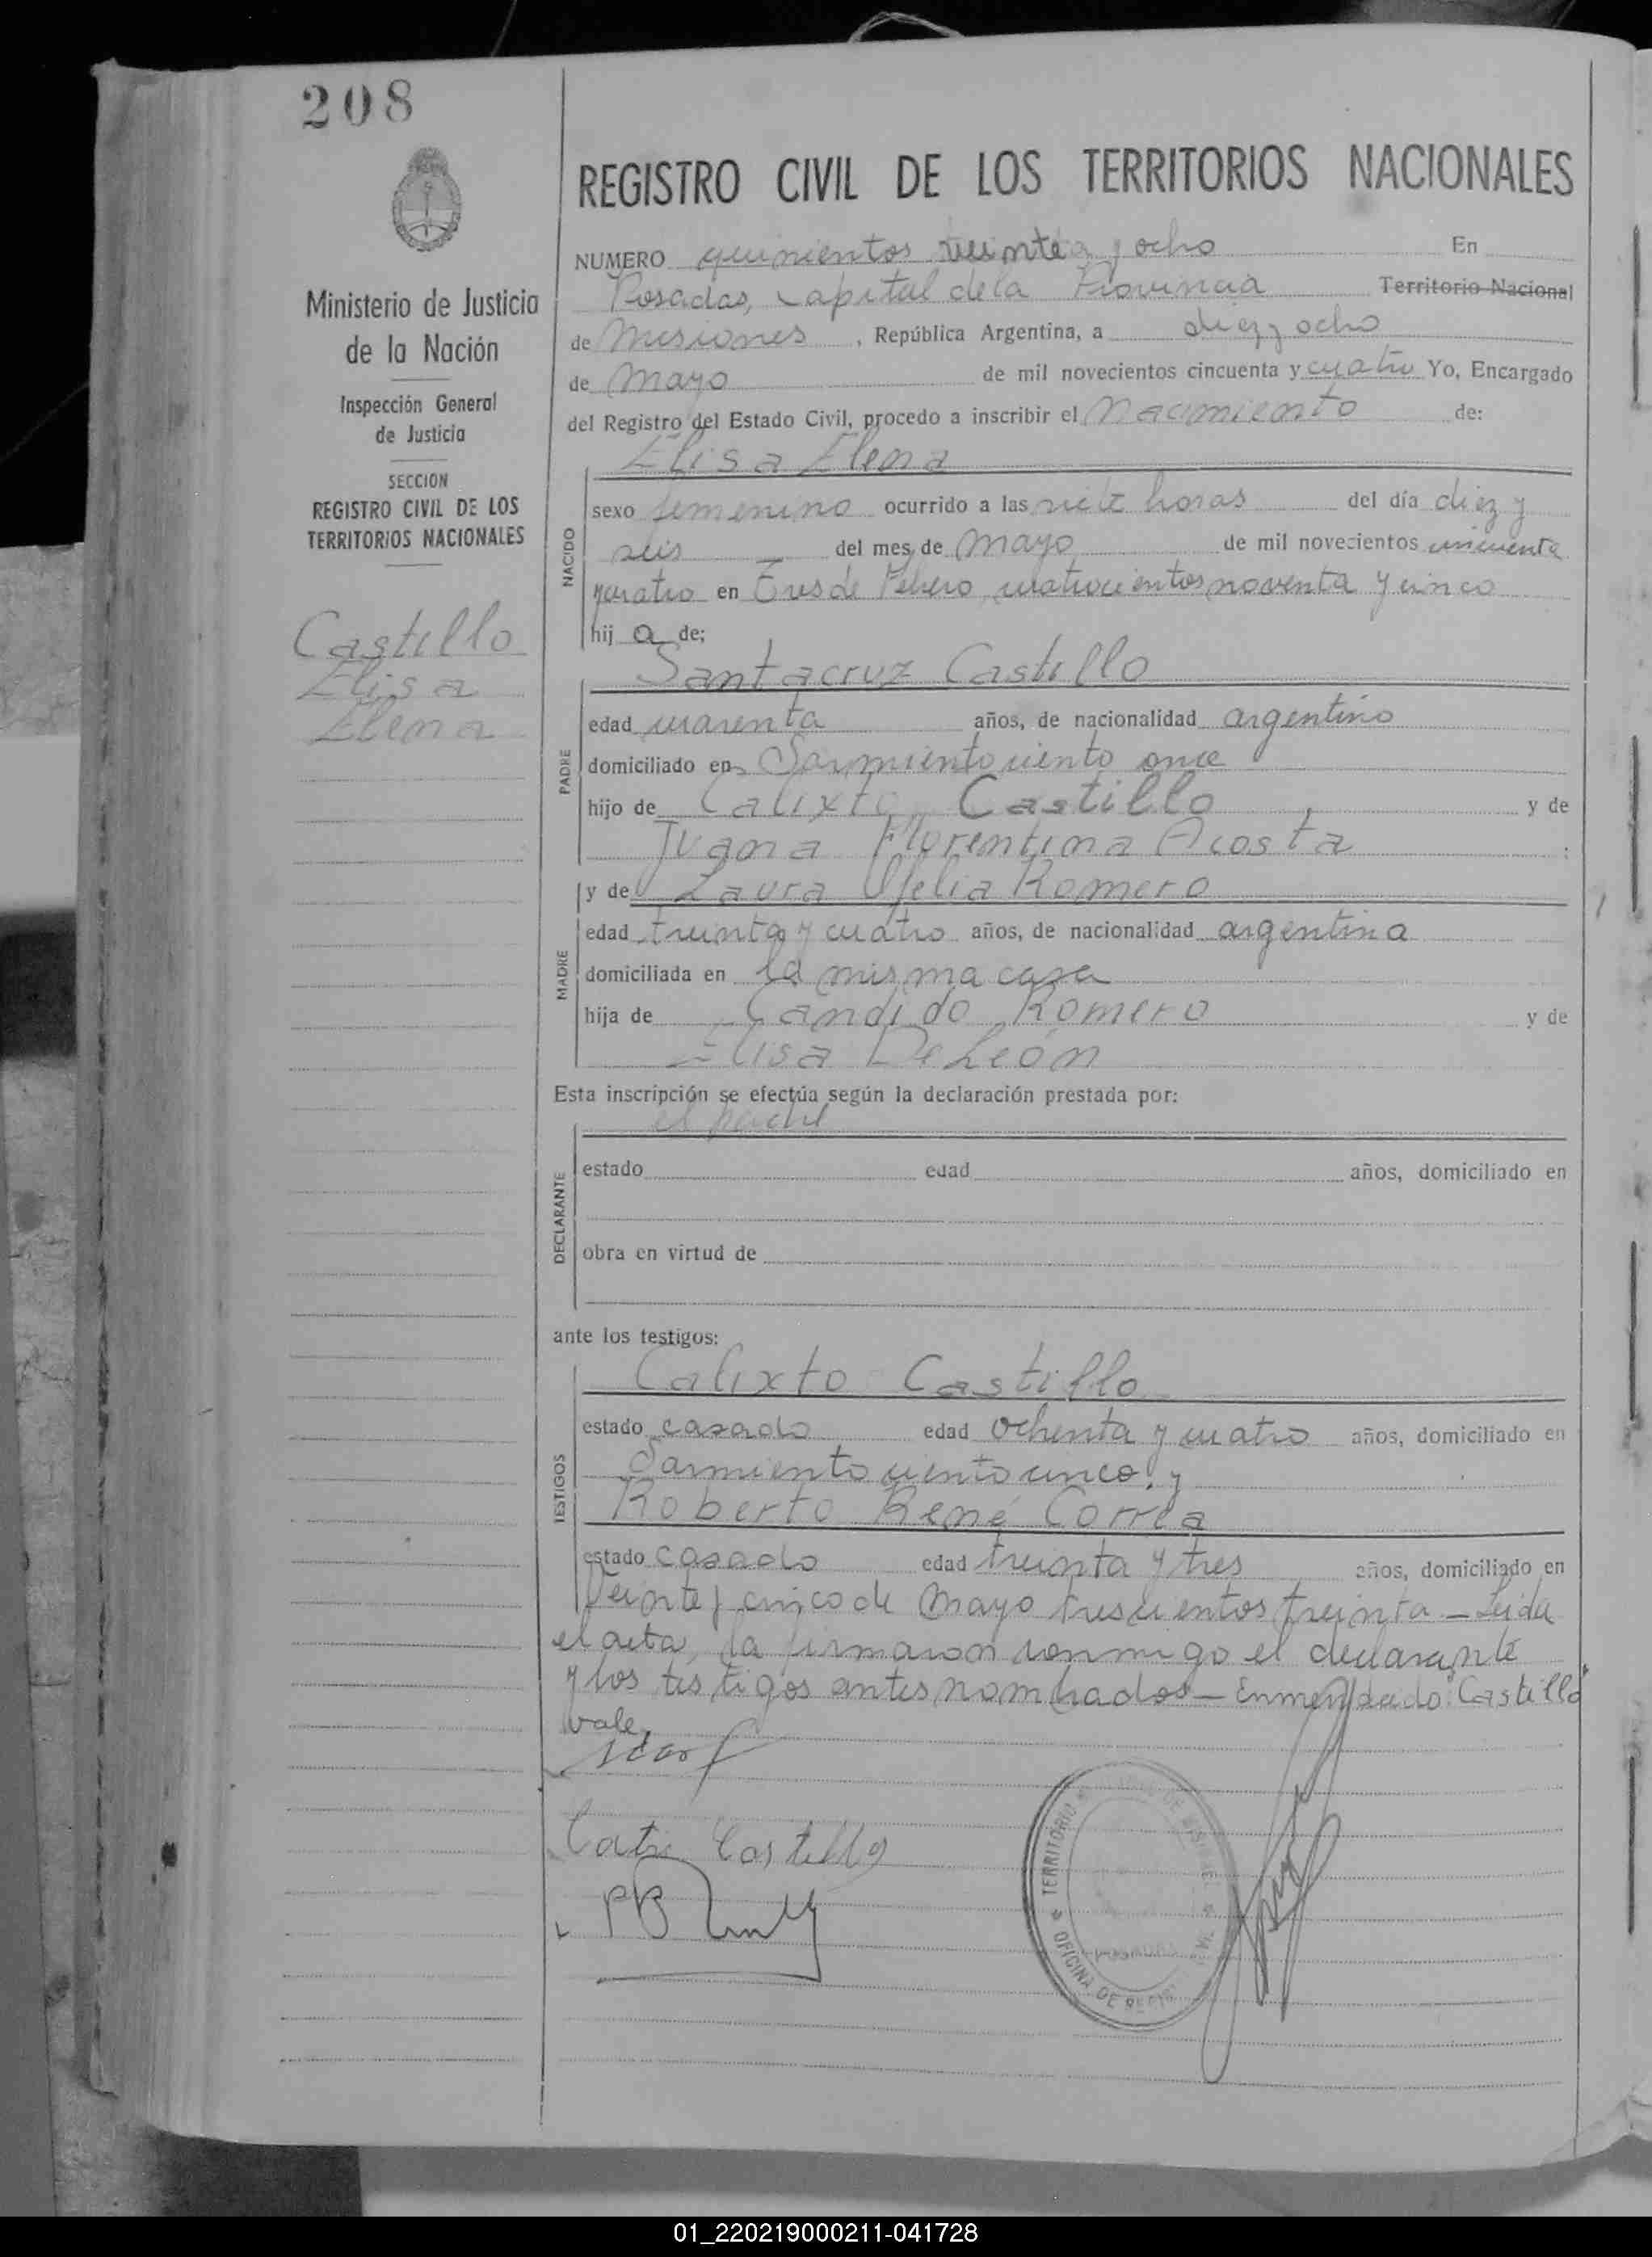 208
REGISTRO CIVIL DE LOS TERRITORIOS NACIONALES
Ministerio de Justicia
de la Nación
Inspección General
de Justicia
SECCION
REGISTRO CIVIL DE LOS
TERRITORIOS NACIONALES
Castillo
Elisa
Elena
NUMERO quinientos y ocho En
Posadas, Capital de la Provincia Territorio Nacional
de Misiones, República Argentina, a diez y ocho
de Mayo de mil novecientos cincuenta y cuatro Yo, Encargado
del Registro del Estado Civil, procedo a inscribir el Nacimiento de:
Elisa Elena
NACIDO
sexo femenino ocurrido a las siete horas del día diez y
seis del mes de Mayo de mil novecientos cincuenta
y cuatro en Tres de Febrero cuatrocientos noventa y cinco
hij a de;
Santacruz Castillo
PADRE
edad cuarenta años, de nacionalidad argentino
domiciliado en Sarmiento ciento once
hijo de Calixto Castillo y de
Juana Florentina Acosta :
y de Laura Ofelia Romero
MADRE
edad treinta y cuatro años, de nacionalidad argentina
domiciliada en la misma casa
hija de Candido Romero y de
Elisa De León
Esta inscripción se efectúa según la declaración prestada por:
el padre
DECLARANTE
estado edad años, domiciliado en
obra en virtud de
ante los testigos:
Calixto Castillo
TESTIGOS
estado casado edad ochenta y cuatro años, domiciliado en
Sarmiento ciento cinco, y
Roberto René Correa
estado casado edad treinta y tres años, domiciliado en
Veinte y cinco de Mayo trescientos treinta — Leida
el acta, la firmaron conmigo el declarante
y los testigos antes nombrados — Enmendado: Castillo
vale,
Castillo
TERRITORIO
OFICINA DE
POSADAS
01_220219000211-041728